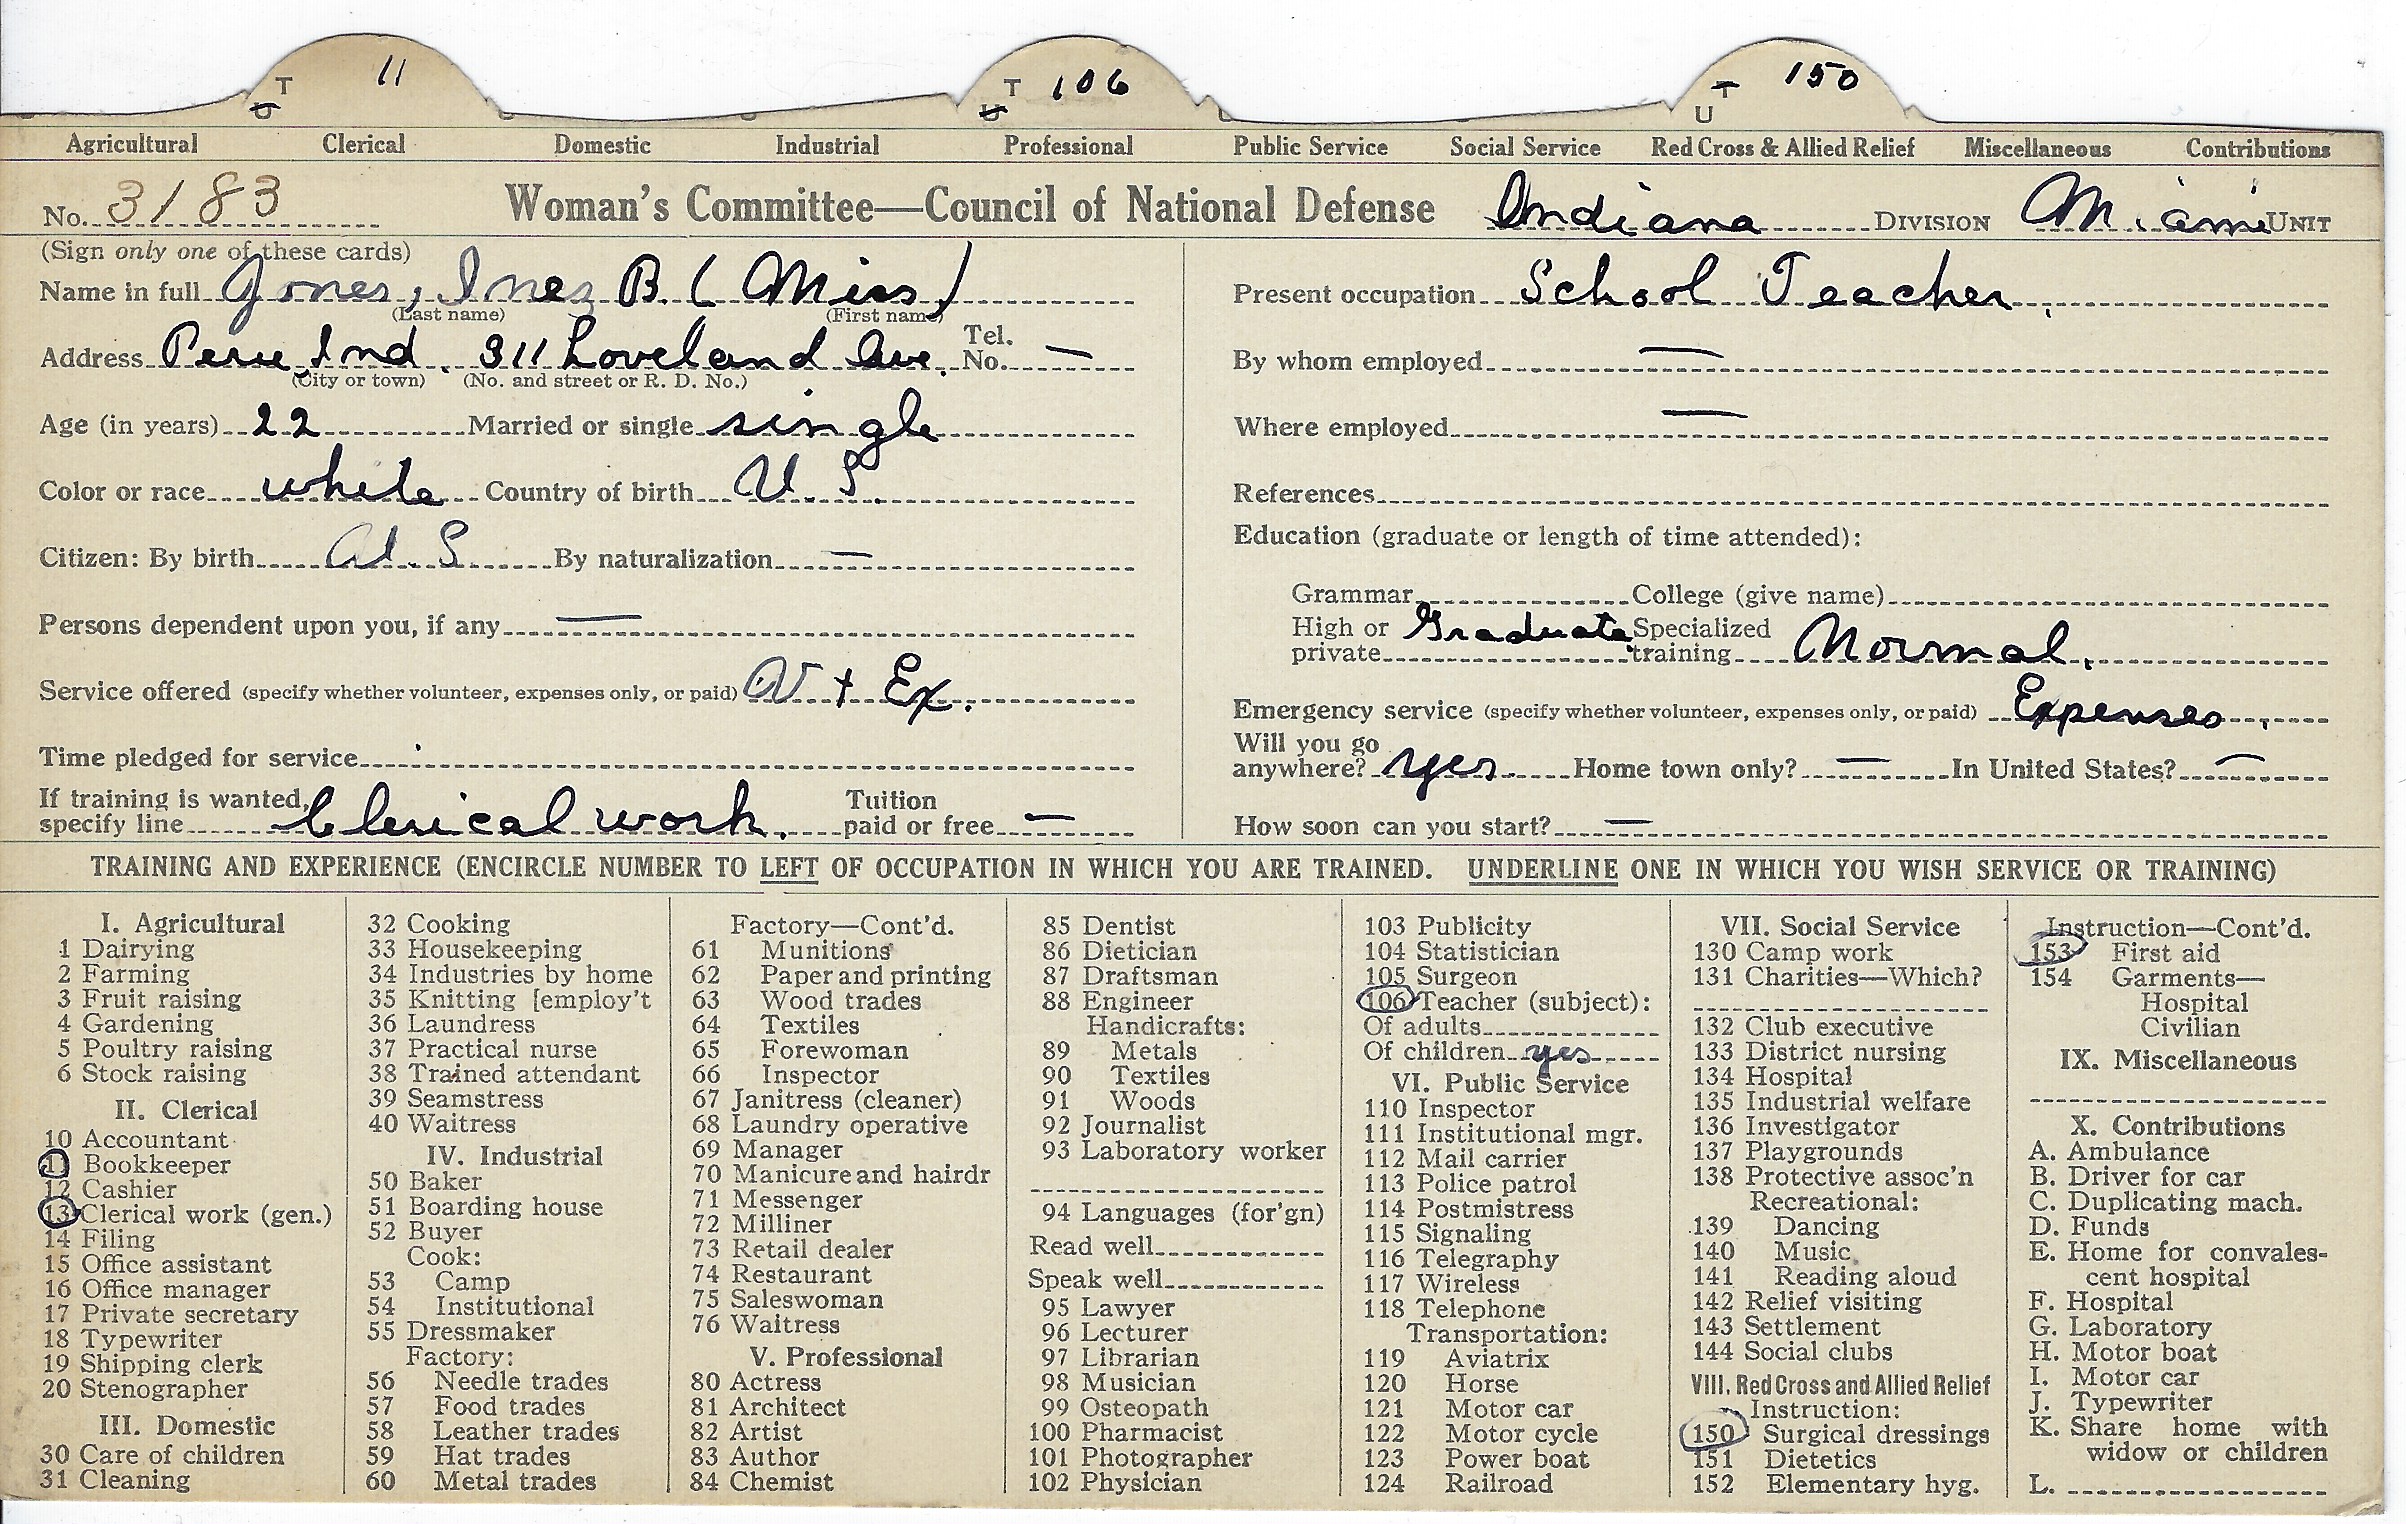 T 11 T 106 T 150
U U U
Agricultural Clerical Domestic Industrial Professional Public Service Social Service Red Cross & Allied Relief Miscellaneous Contributions
No. 3183 Woman's Committee—Council of National Defense Indiana DIVISION Miami UNIT
(Sign only one of these cards)
Name in full Jones, Inez B. (Miss)
(Last name) (First name)
Address Peru Ind. 311 Loveland Ave. Tel. No. —
(City or town) (No. and street or R. D. No.)
Age (in years) 22 Married or single single
Color or race white Country of birth U. S.
Citizen: By birth U. S By naturalization —
Persons dependent upon you, if any —
Service offered (specify whether volunteer, expenses only, or paid) V + Ex.
Time pledged for service
If training is wanted, specify line Clerical work. Tuition paid or free —
Present occupation School Teacher.
By whom employed —
Where employed —
References
Education (graduate or length of time attended):
Grammar College (give name)
High or private Graduate. Specialized training Normal.
Emergency service (specify whether volunteer, expenses only, or paid) Expenses.
Will you go anywhere? yes. Home town only? — In United States? —
How soon can you start? —
TRAINING AND EXPERIENCE (ENCIRCLE NUMBER TO LEFT OF OCCUPATION IN WHICH YOU ARE TRAINED. UNDERLINE ONE IN WHICH YOU WISH SERVICE OR TRAINING)
I. Agricultural
1 Dairying
2 Farming
3 Fruit raising
4 Gardening
5 Poultry raising
6 Stock raising
II. Clerical
10 Accountant
11 Bookkeeper
12 Cashier
13 Clerical work (gen.)
14 Filing
15 Office assistant
16 Office manager
17 Private secretary
18 Typewriter
19 Shipping clerk
20 Stenographer
III. Domestic
30 Care of children
31 Cleaning
32 Cooking
33 Housekeeping
34 Industries by home
35 Knitting [employ't
36 Laundress
37 Practical nurse
38 Trained attendant
39 Seamstress
40 Waitress
IV. Industrial
50 Baker
51 Boarding house
52 Buyer
Cook:
53 Camp
54 Institutional
55 Dressmaker
Factory:
56 Needle trades
57 Food trades
58 Leather trades
59 Hat trades
60 Metal trades
Factory—Cont'd.
61 Munitions
62 Paper and printing
63 Wood trades
64 Textiles
65 Forewoman
66 Inspector
67 Janitress (cleaner)
68 Laundry operative
69 Manager
70 Manicure and hairdr
71 Messenger
72 Milliner
73 Retail dealer
74 Restaurant
75 Saleswoman
76 Waitress
V. Professional
80 Actress
81 Architect
82 Artist
83 Author
84 Chemist
85 Dentist
86 Dietician
87 Draftsman
88 Engineer
Handicrafts:
89 Metals
90 Textiles
91 Woods
92 Journalist
93 Laboratory worker
94 Languages (for'gn)
Read well
Speak well
95 Lawyer
96 Lecturer
97 Librarian
98 Musician
99 Osteopath
100 Pharmacist
101 Photographer
102 Physician
103 Publicity
104 Statistician
105 Surgeon
106 Teacher (subject):
Of adults
Of children yes
VI. Public Service
110 Inspector
111 Institutional mgr.
112 Mail carrier
113 Police patrol
114 Postmistress
115 Signaling
116 Telegraphy
117 Wireless
118 Telephone
Transportation:
119 Aviatrix
120 Horse
121 Motor car
122 Motor cycle
123 Power boat
124 Railroad
VII. Social Service
130 Camp work
131 Charities—Which?
132 Club executive
133 District nursing
134 Hospital
135 Industrial welfare
136 Investigator
137 Playgrounds
138 Protective assoc'n
Recreational:
139 Dancing
140 Music
141 Reading aloud
142 Relief visiting
143 Settlement
144 Social clubs
VIII. Red Cross and Allied Relief
Instruction:
150 Surgical dressings
151 Dietetics
152 Elementary hyg.
Instruction—Cont'd.
153 First aid
154 Garments—
Hospital
Civilian
IX. Miscellaneous
X. Contributions
A. Ambulance
B. Driver for car
C. Duplicating mach.
D. Funds
E. Home for convales-
cent hospital
F. Hospital
G. Laboratory
H. Motor boat
I. Motor car
J. Typewriter
K. Share home with
widow or children
L.